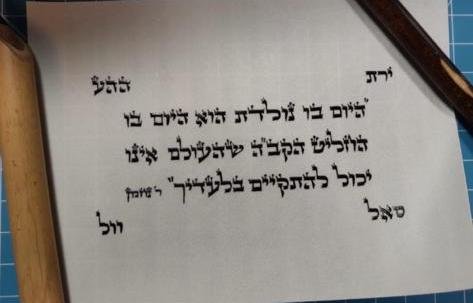 ירת ההע
"היום בו נולדת הוא היום בו
החליט הקב"ה שהעולם אינו
יכול להתקיים בלעדיך" ר' נחמן
סאל וול